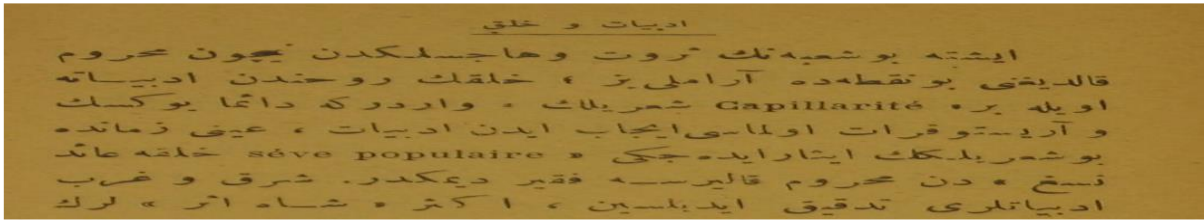 ادبيات و خلق
ايشته بو شعبه نك ثروت وهاجسلكدن نيچون محروم
قالديغنى بو نقطه ده آراملى يز ، خلقك روحندن ادبياته
اويله بر « Capillarité شعريلك » واردر كه دائما يوكسك
و آريستوقرات اولماسى ايجاب ايدن ادبيات ، عينى زمانده
بو شعريلكك ايثار ايده جكى « séve populaire خلقه عائد
نسغ » دن محروم قاليرسه فقير ديمكدر. شرق و غرب
ادبياتلرى تدقيق ايديلسين ، اكثر « شاه اثر » لرك